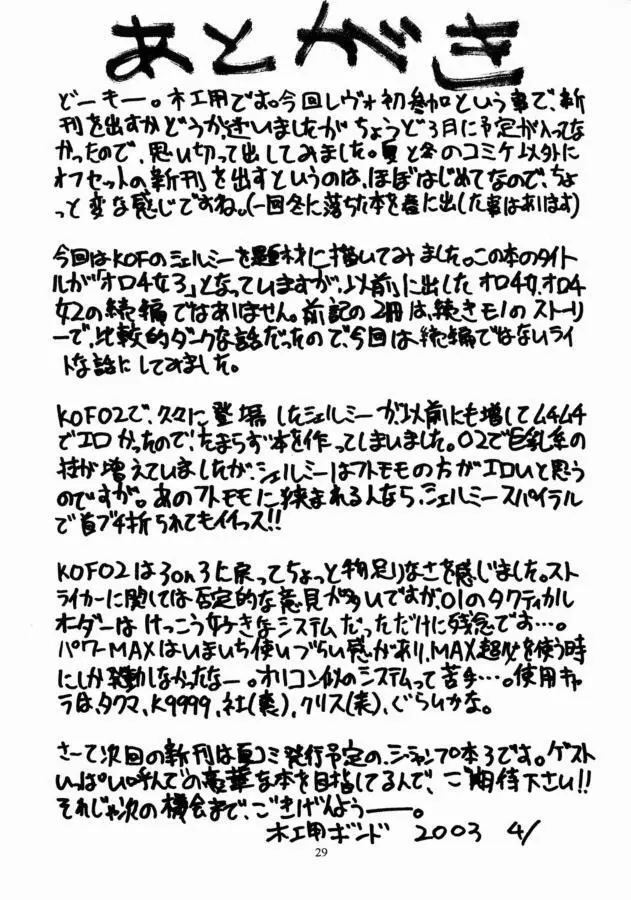 あとがき
どーもー。木工用です。今回レヴォ初参加という事で、新
刊を出すかどうか迷いましたがちょうど3月に予定が入ってな
かったので、思い切って出してみました。夏と冬のコミケ以外に
オフセットの新刊を出すというのは、ほぼはじめてなので、ちょ
っと変な感じですね。(一回冬に落ちた本を春に出した事はあります)
今回はKOFのシェルミーを題材に描いてみました。この本のタイト
ルが「オロ4女3」となっていますが、以前に出したオロ4女、オロ4
女2の続編ではありません。前記の2冊は、続きモノのストーリ
ーで、比較的ダークな話だったので、今回は続編ではないライ
トな話にしてみました。
KOF02で、久々に登場したシェルミーが、以前にも増してムチムチ
でエロかったので、たまらず本を作ってしまいました。02で巨乳系の
技が増えていましたが、シェルミーはフトモモの方がエロいと思う
のですが。あのフトモモに挟まれる人なら、シェルミースパイラル
で首ブチ折られてもイイっス!!
KOF02は3on3に戻ってちょっと物足りなさを感じました。スト
ライカーに関しては否定的な意見が多いですが、01のタクティカル
オーダーはけっこう好きなシステムだっただけに残念です…。
パワーMAXはいまいち使いづらい感があり、MAX超必を使う時
にしか発動しなかったなー。オリコン似のシステムって苦手…。使用キャ
ラは、タクマ、K9999、社(裏)、クリス(表)、ぐらいかな。
さーて次回の新刊は夏コミ発行予定の、ジャンプ本3です。ゲスト
いっぱい呼んでの豪華な本を目指してるんで、ご期待下さい!!
それじゃ次の機会まで、ごきげんようーー。
木工用ボンド 2003 4/
29